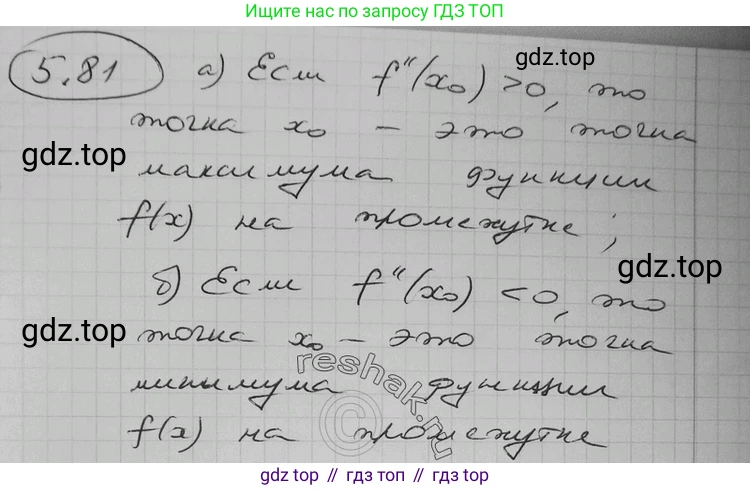 Ищите нас по запросу ГДЗ ТОП
5.81 а) Если f''(x₀) >0, то
gdz.top
точка x₀ - это точка
gdz.top
максимума функции
f(x) на промежутке;
gdz.top
б) Если f''(x₀) <0, то
gdz.top
точка x₀ - это точка
reshak.ru
минимума функции
©
f(x) на промежутке
gdz top // гдз топ // gdz.top